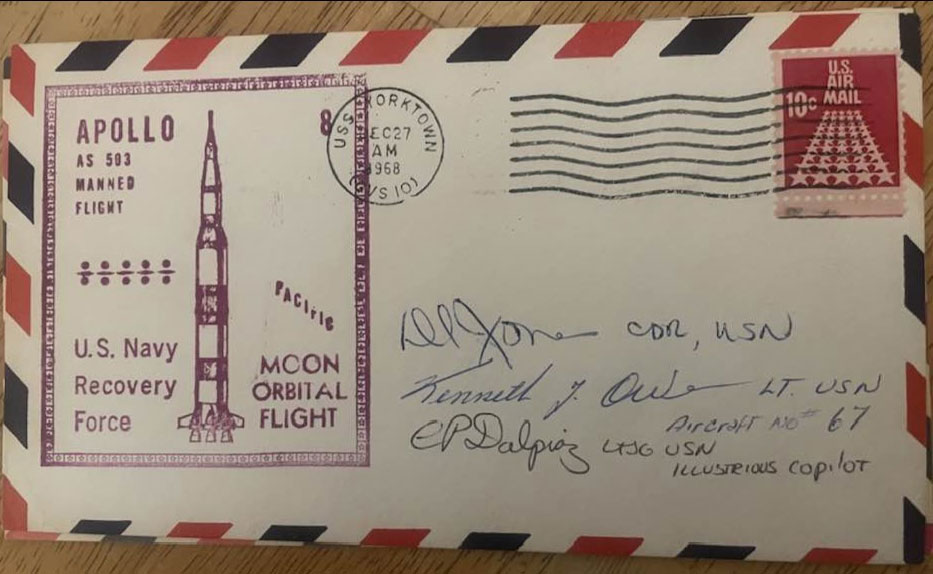 APOLLO 8
AS 503
MANNED
FLIGHT
PACIFIC
U.S. Navy
Recovery
Force
MOON
ORBITAL
FLIGHT
USS YORKTOWN
DEC27
AM
1968
(CVS 10)
U.S.
AIR
MAIL
10c
Jones CDR, USN
Kenneth J. LT. USN
Aircraft No # 67
EPDalpiaz LTJG USN
ILLUSTRIOUS COPILOT